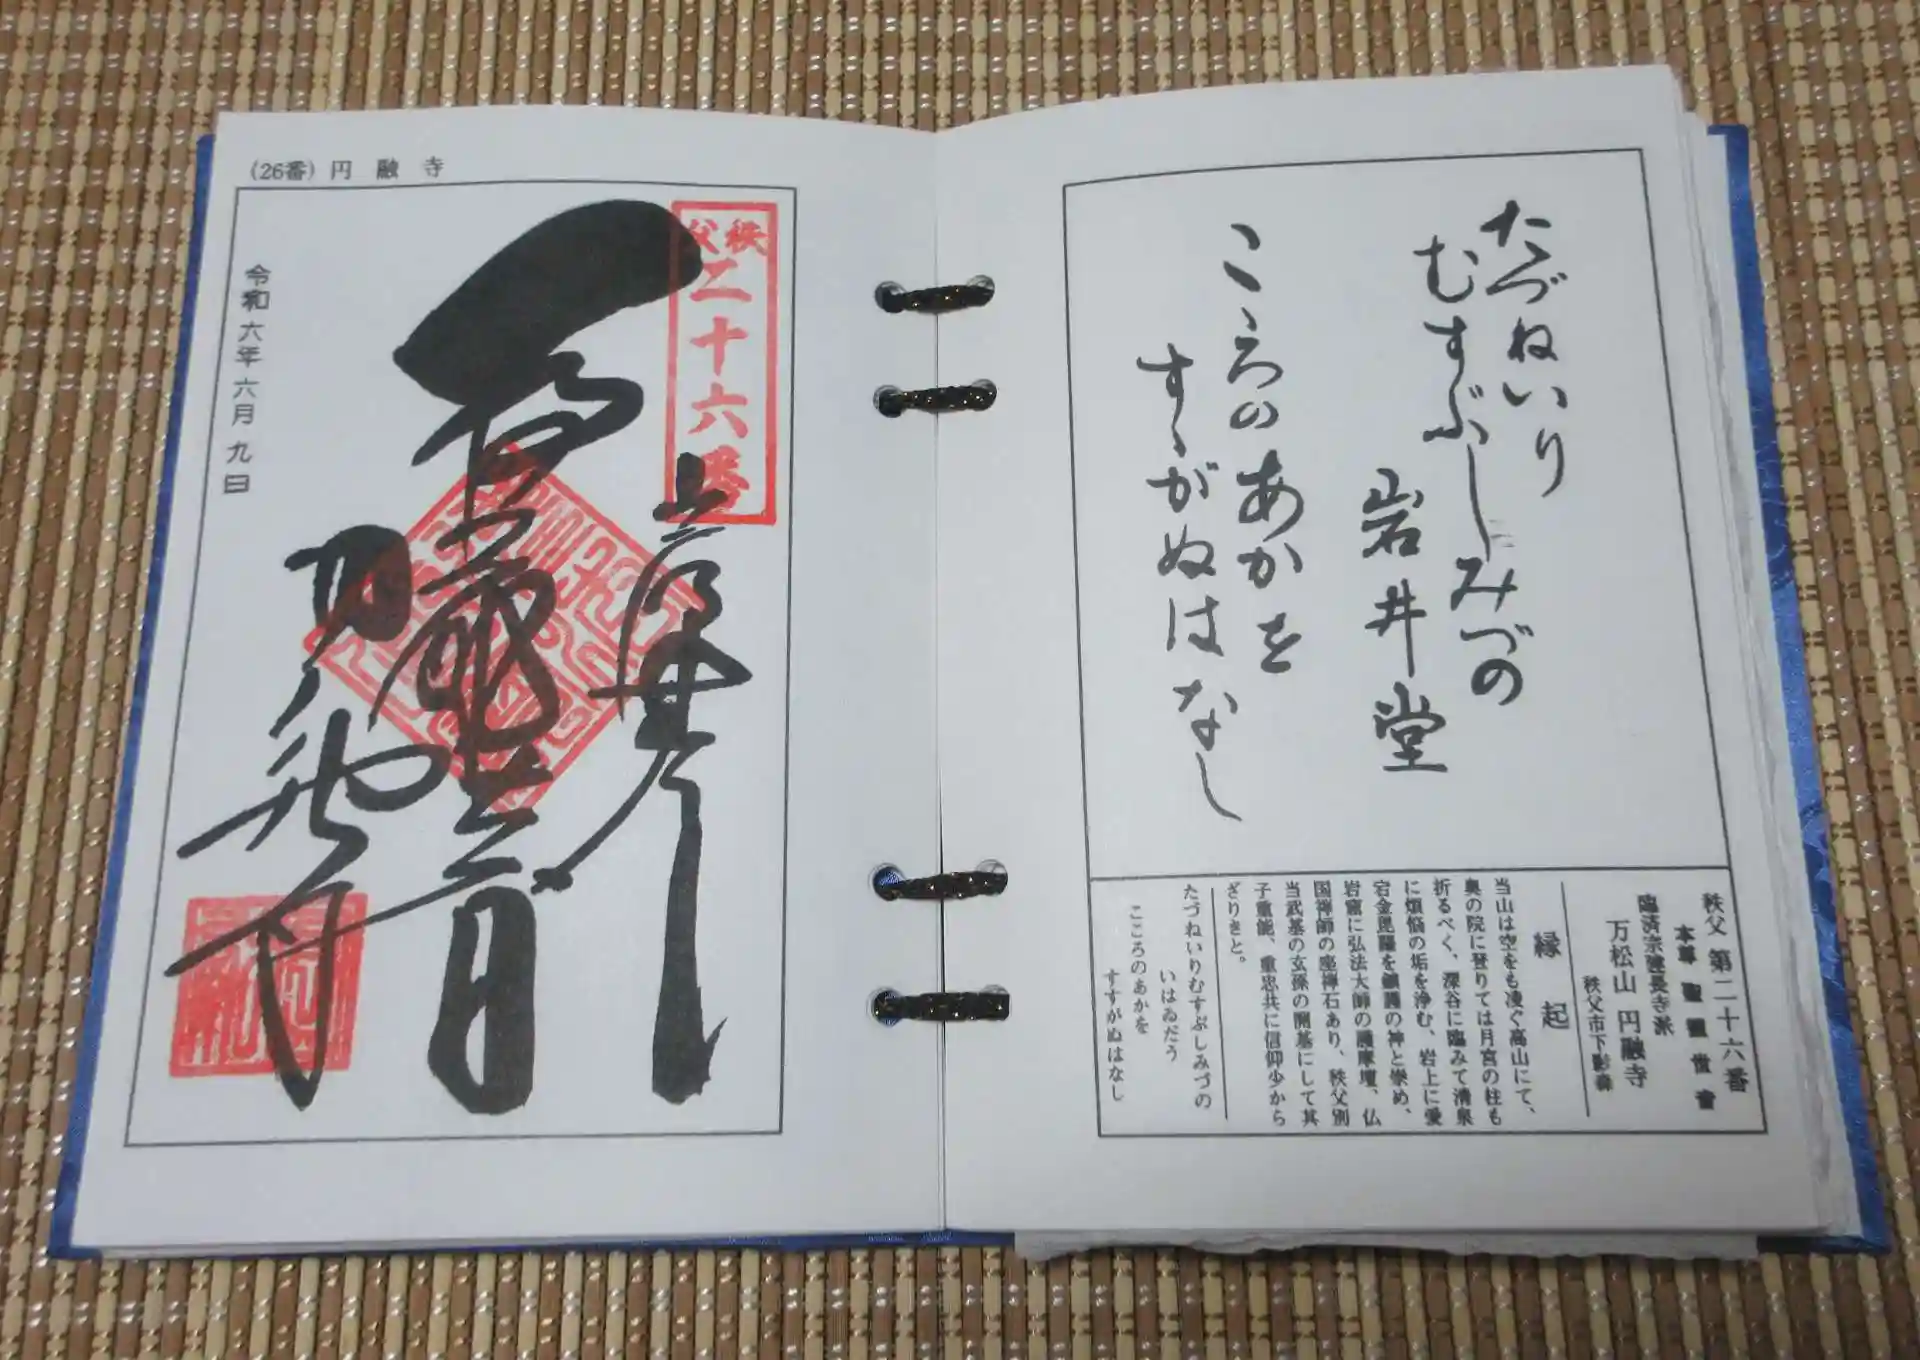 (26番) 円融寺
令和六年六月九日
秩父
二十六番
たづねいり
むすぶしみづの
岩井堂
こゝろのあかを
すゝがぬはなし
秩父 第二十六番
本尊 聖観世音
臨済宗建長寺派
万松山 円融寺
秩父市下影森
縁起
当山は空をも凌ぐ高山にて、
奥の院に登りては月宮の柱も
折るべく、深谷に臨みて清泉
に煩悩の垢を浄む、岩上に愛
宕金毘羅を鎮護の神と崇め、
岩窟に弘法大師の護摩壇、仏
国禅師の座禅石あり、秩父別
当武基の玄孫の開基にして其
子重能、重忠共に信仰少から
ざりきと。
たづねいりむすぶしみづの
いはゐだう
こころのあかを
すすがぬはなし